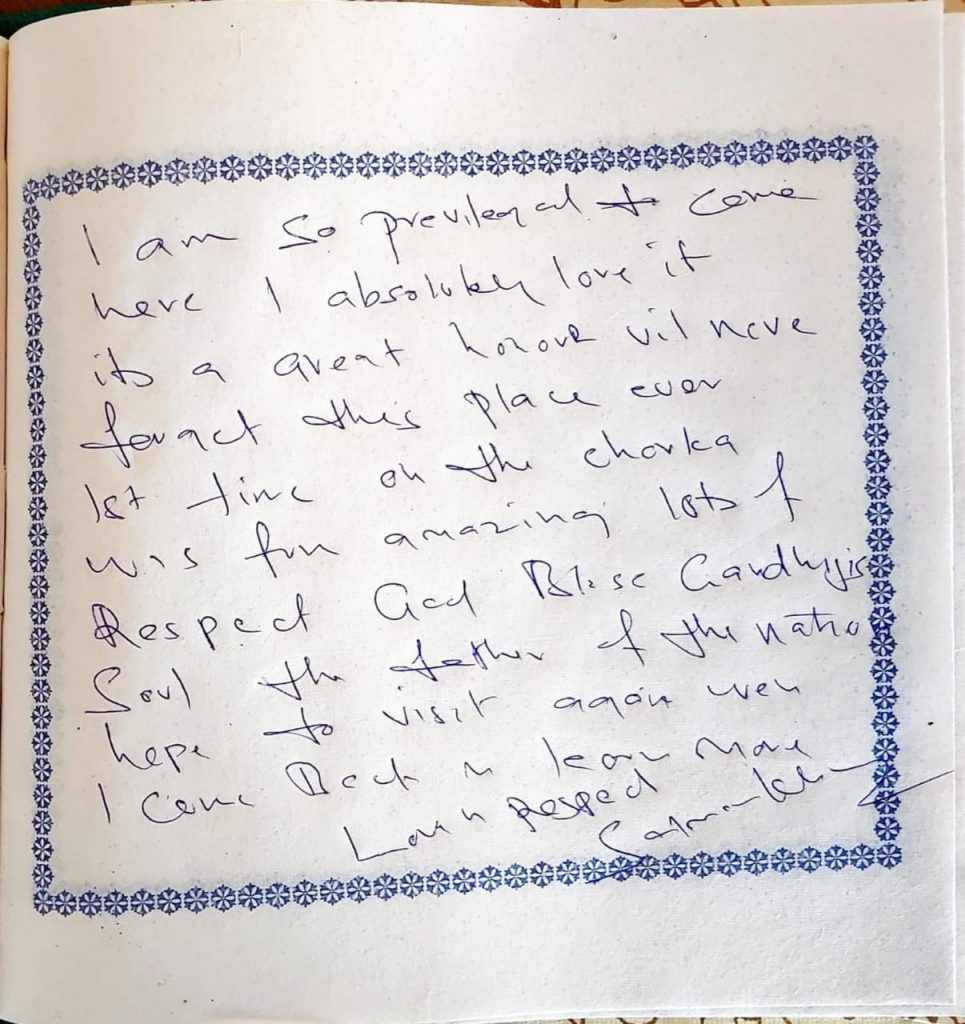 I am so previleged to come
here I absolutely love it
its a great honour vil neve
forget this place ever
1st time on the charka
was fun amazing lots of
Respect God Blese Gandhijis
Soul the father of the natio
hope to visit again wen
I come Back n learn more
Love n Respect
Salman Khan